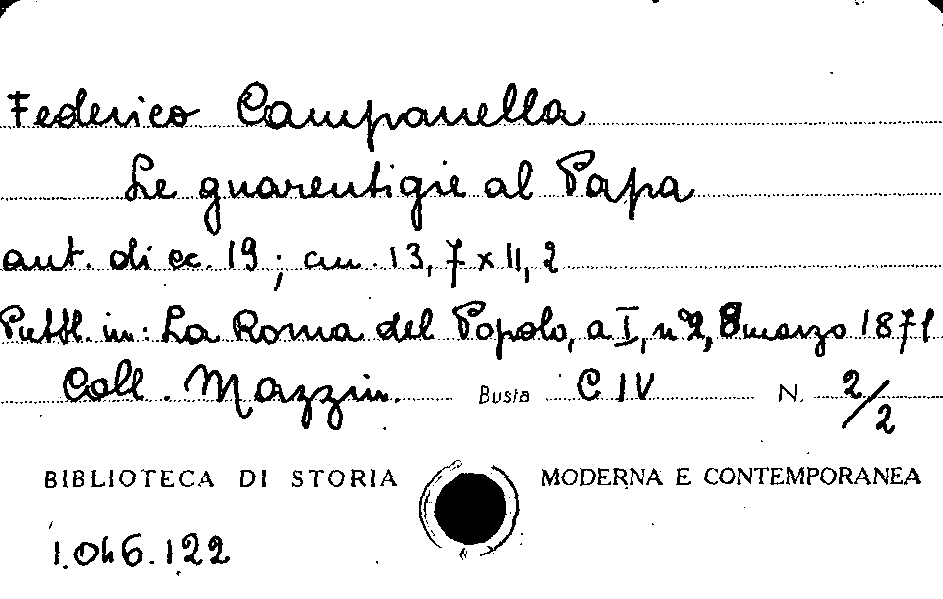 Federico Campanella
Le guarentigie al Papa
aut. di cc. 19; cm. 13,7 x 11,2
Pubbl. in: La Roma del Popolo, a I, n° 2, 8 marzo 1871
Coll. Mazzin. Busta C IV N. 2/2
BIBLIOTECA DI STORIA MODERNA E CONTEMPORANEA
1.046.122